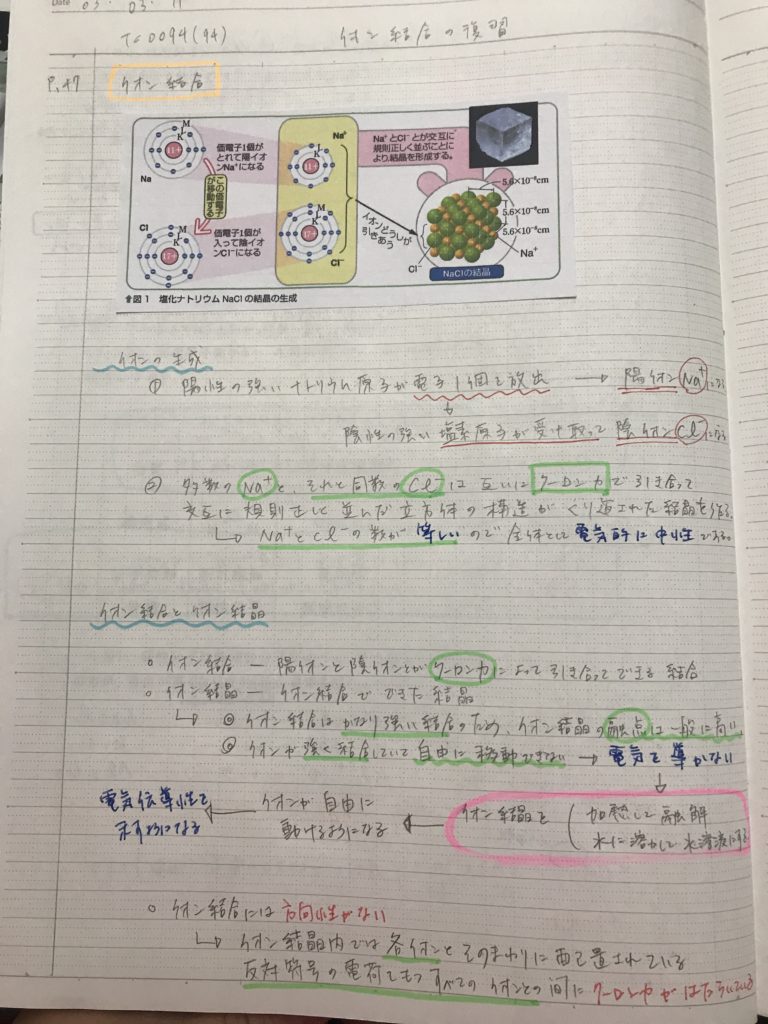 Date 03. 03. 11
イオン結合の復習
P.47 イオン結合
価電子1個が
とれて陽イオ
ンNa⁺になる
Na
この価電子が移動する
Cl
価電子1個が
入って陰イオ
ンCl⁻になる
M
K
11+
17+
M
K
Na⁺
K
11+
M
K
17+
Cl⁻
Na⁺とCl⁻とが交互に
規則正しく並ぶことに
より,結晶を形成する。
イオンどうしが
引きあう
5.6×10⁻⁸cm
5.6×10⁻⁸cm
5.6×10⁻⁸cm
Na⁺
Cl⁻
NaClの結晶
図1 塩化ナトリウム NaCl の結晶の生成
イオンの生成
① 陽性の強いナトリウム原子が電子1個を放出 → 陽イオンNa⁺になる
陰性の強い塩素原子が受け取って 陰イオンCl⁻になる
② 多数のNa⁺と、それと同数のCl⁻は互いにクーロン力で引き合って
交互に規則正しく並んだ立方体の構造がくり返された結晶を作る。
↳ Na⁺とCl⁻の数が等しいので全体として電気的に中性である。
イオン結合とイオン結晶
○ イオン結合 ― 陽イオンと陰イオンとがクーロン力によって引き合ってできる結合
○ イオン結晶 ― イオン結合でできた結晶
↳ ◎ イオン結合はかなり強い結合のため、イオン結晶の融点は一般に高い
◎ イオンが強く結合していて自由に移動できない → 電気を導かない
↓
イオン結晶を ( 加熱して融解
水に溶かして水溶液にする
← イオンが自由に
動けるようになる
← 電気伝導性を
示すようになる
○ イオン結合には方向性がない
↳ イオン結晶内では各イオンとそのまわりに配置されている
反対符号の電荷をもつすべてのイオンとの間にクーロン力がはたらいている